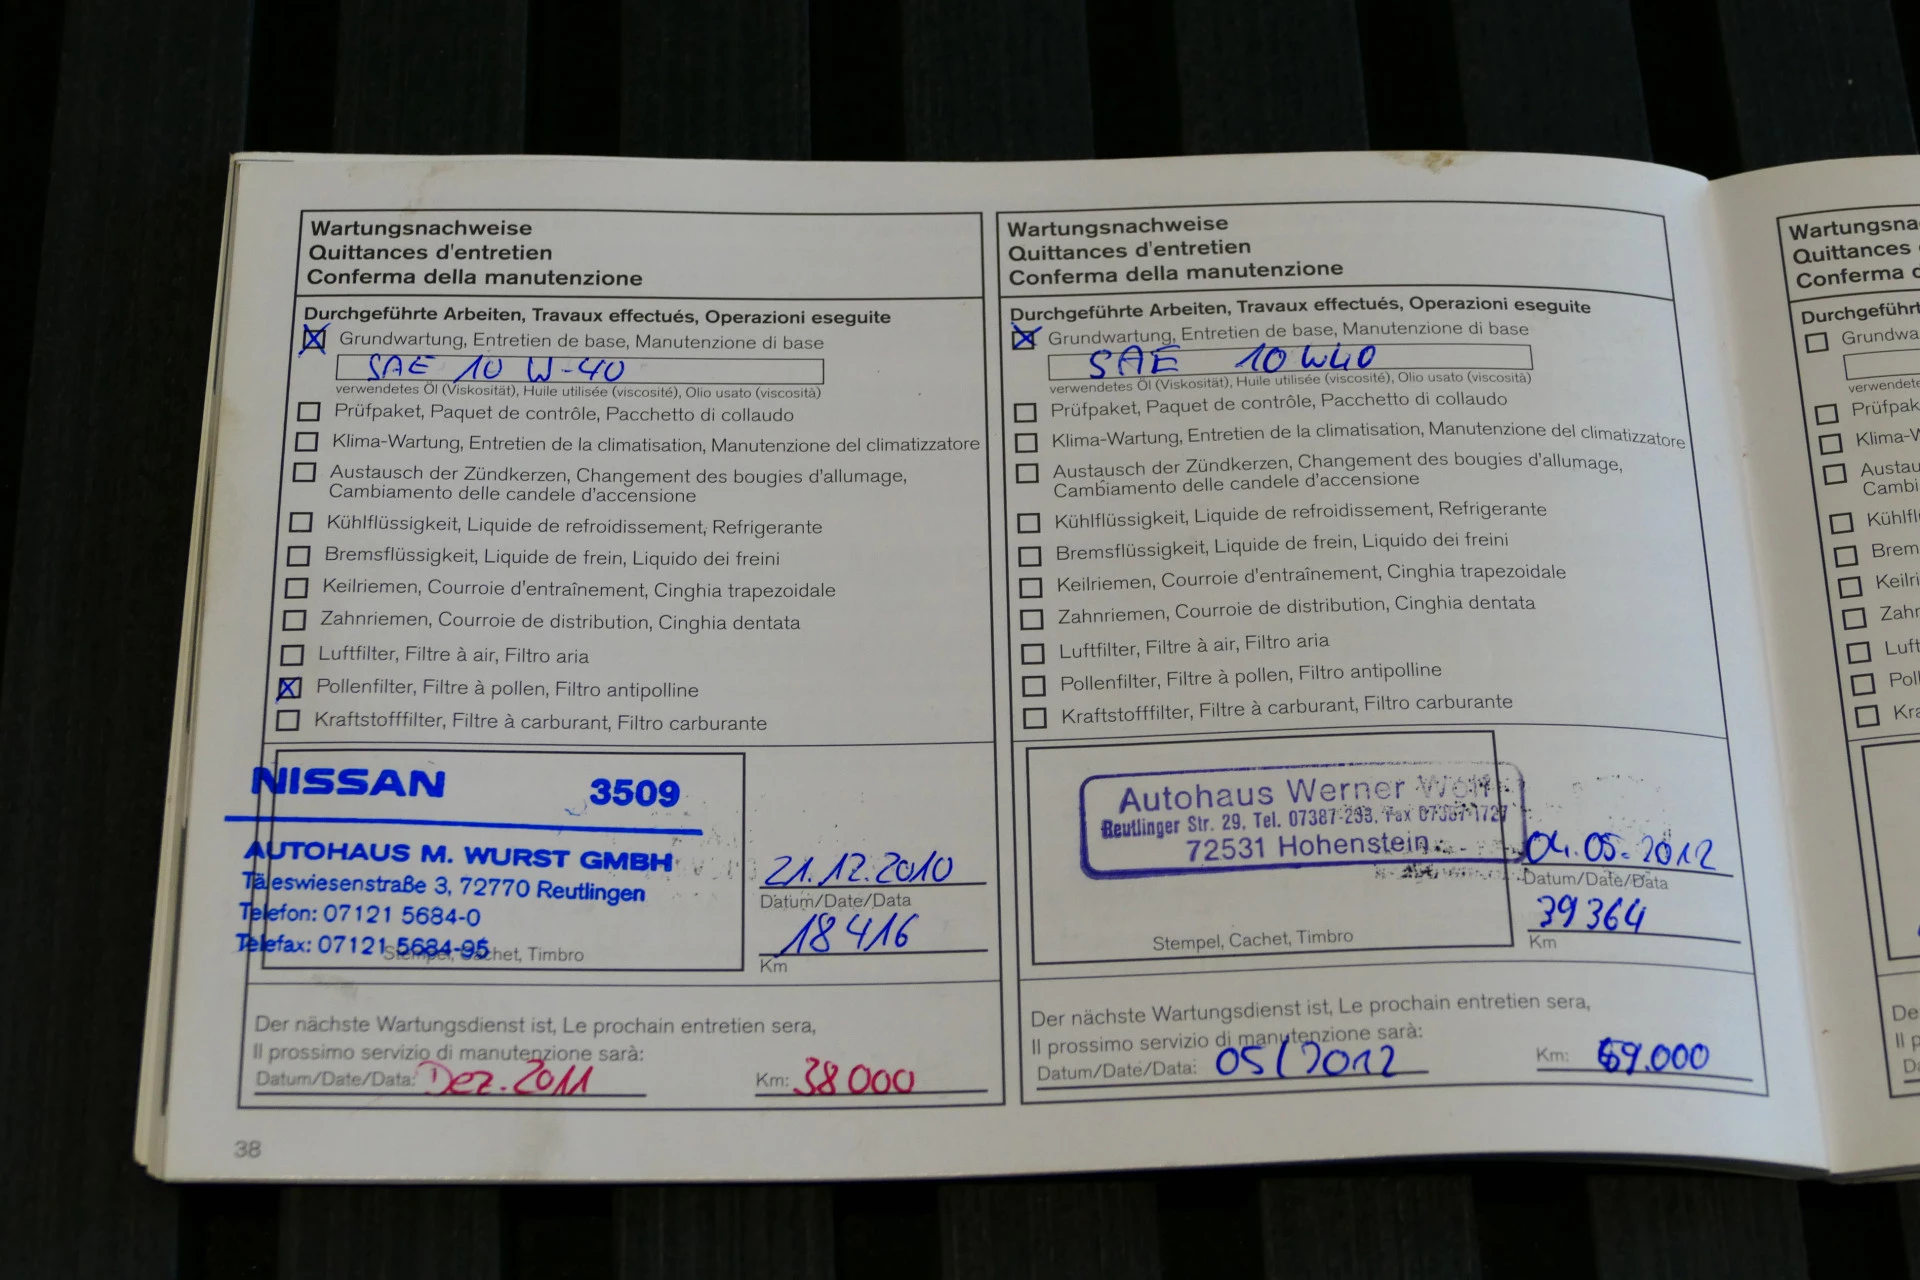 Wartungsnachweise
Quittances d'entretien
Conferma della manutenzione
Durchgeführte Arbeiten, Travaux effectués, Operazioni eseguite
Grundwartung, Entretien de base, Manutenzione di base
SAE 10 W-40
verwendetes Öl (Viskosität), Huile utilisée (viscosité), Olio usato (viscosità)
Prüfpaket, Paquet de contrôle, Pacchetto di collaudo
Klima-Wartung, Entretien de la climatisation, Manutenzione del climatizzatore
Austausch der Zündkerzen, Changement des bougies d'allumage,
Cambiamento delle candele d'accensione
Kühlflüssigkeit, Liquide de refroidissement, Refrigerante
Bremsflüssigkeit, Liquide de frein, Liquido dei freini
Keilriemen, Courroie d'entraînement, Cinghia trapezoidale
Zahnriemen, Courroie de distribution, Cinghia dentata
Luftfilter, Filtre à air, Filtro aria
Pollenfilter, Filtre à pollen, Filtro antipolline
Kraftstofffilter, Filtre à carburant, Filtro carburante
NISSAN 3509
AUTOHAUS M. WURST GMBH
Täleswiesenstraße 3, 72770 Reutlingen
Telefon: 07121 5684-0
Telefax: 07121 5684-95
Stempel, Cachet, Timbro
21.12.2010
Datum/Date/Data
18416
Km
Der nächste Wartungsdienst ist, Le prochain entretien sera,
Il prossimo servizio di manutenzione sarà:
Datum/Date/Data: Dez. 2011 Km: 38000
38
Wartungsnachweise
Quittances d'entretien
Conferma della manutenzione
Durchgeführte Arbeiten, Travaux effectués, Operazioni eseguite
Grundwartung, Entretien de base, Manutenzione di base
SAE 10W40
verwendetes Öl (Viskosität), Huile utilisée (viscosité), Olio usato (viscosità)
Prüfpaket, Paquet de contrôle, Pacchetto di collaudo
Klima-Wartung, Entretien de la climatisation, Manutenzione del climatizzatore
Austausch der Zündkerzen, Changement des bougies d'allumage,
Cambiamento delle candele d'accensione
Kühlflüssigkeit, Liquide de refroidissement, Refrigerante
Bremsflüssigkeit, Liquide de frein, Liquido dei freini
Keilriemen, Courroie d'entraînement, Cinghia trapezoidale
Zahnriemen, Courroie de distribution, Cinghia dentata
Luftfilter, Filtre à air, Filtro aria
Pollenfilter, Filtre à pollen, Filtro antipolline
Kraftstofffilter, Filtre à carburant, Filtro carburante
Autohaus Werner
Reutlinger Str. 29, Tel. 07387-293, Fax
72531 Hohenstein
Stempel, Cachet, Timbro
04.05.2012
Datum/Date/Data
39364
Km
Der nächste Wartungsdienst ist, Le prochain entretien sera,
Il prossimo servizio di manutenzione sarà:
Datum/Date/Data: 05/2012 Km: 69.000
Wartungsna
Quittances
Conferma d
Durchgeführt
Grundwa
verwendete
Prüfpak
Klima-W
Austau
Cambi
Kühlfl
Brem
Keilri
Zahn
Luft
Pol
Kra
De
Il p
D